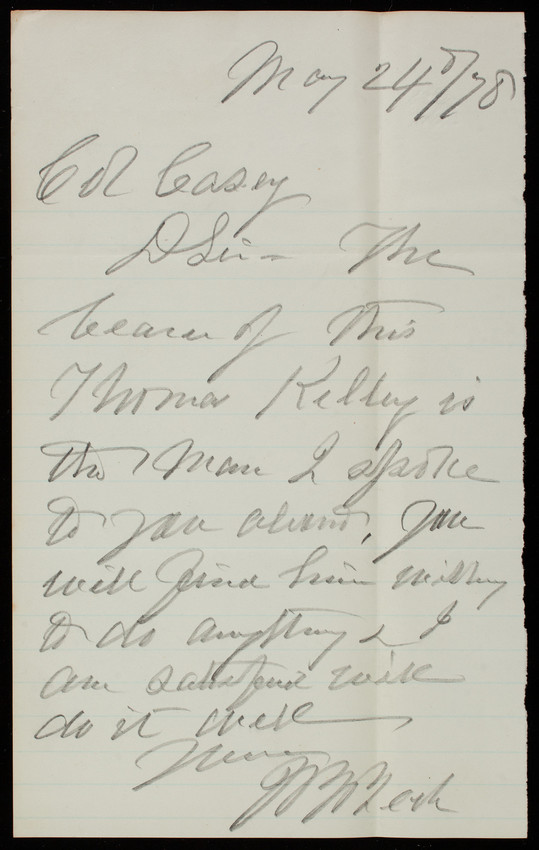 May 24th/78
Col Casey
DSir - The
bearer of this
Thomas Kelley is
the man I spoke
to you about, you
will find him willing
to do anything & I
am satisfied will
do it well
Yours
Beck